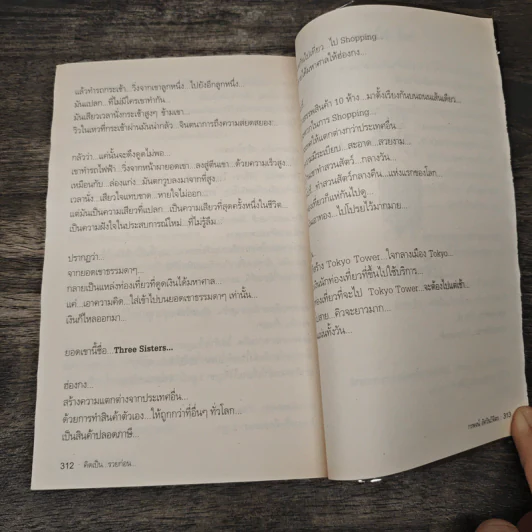 แล้วทำรถกระเช้า...วิ่งจากเขาลูกหนึ่ง...ไปยังอีกลูกหนึ่ง...
มันแปลก...ที่ไม่มีใครเขาทำกัน...
มันเสียวเวลานั่งกระเช้าสูงๆ ข้ามเขา...
วิวในเหวที่กระเช้าผ่านมันน่ากลัว...จินตนาการถึงความสยดสยอง...
กลัวว่า...แค่นั้นจะดึงดูดไม่พอ...
เขาทำรถไฟฟ้า...วิ่งจากหน้าผายอดเขา...ลงสู่ตีนเขา...ด้วยความเร็วสูง...
เหมือนกับ...ล่องแก่ง...มันตกวูบลงมาจากที่สูง...
เวลานั่ง...เสียวใจแทบขาด...หายใจไม่ออก...
แต่มันเป็นความเสียวที่แปลก...เป็นความเสียวที่สุดครั้งหนึ่งในชีวิต...
เป็นความฝังใจในประสบการณ์ใหม่...ที่ไม่รู้ลืม...
ปรากฏว่า...
จากยอดเขาธรรมดาๆ...
กลายเป็นแหล่งท่องเที่ยวที่ดูดเงินได้มหาศาล...
แค่...เอาความคิด...ใส่เข้าไปบนยอดเขาธรรมดาๆ เท่านั้น...
เงินก็ไหลออกมา...
ยอดเขานี้ชื่อ...Three Sisters...
ฮ่องกง...
สร้างความแตกต่างจากประเทศอื่น...
ด้วยการทำสินค้าตัวเอง...ให้ถูกกว่าที่อื่นๆ ทั่วโลก...
เป็นสินค้าปลอดภาษี...
312 คิดเป็น...รวยก่อน...
ไป Shopping...
มหาศาลให้ฮ่องกง...
สินค้า 10 ห้าง...มาตั้งเรียงกันบนถนนเส้นเดียว...
ในการ Shopping...
ให้แตกต่างกว่าประเทศอื่น...
มีระเบียบ...สะอาด...สวยงาม...
เขาทำสวนสัตว์...กลางวัน...
ทำสวนสัตว์กลางคืน...แห่งแรกของโลก...
เที่ยวก็แห่กันไปดู...
ทอง...ไปโปรยไว้มากมาย...
สร้าง Tokyo Tower...ใจกลางเมือง Tokyo...
นักท่องเที่ยวที่ขึ้นไปใช้บริการ...
ท่องเที่ยวที่จะไป Tokyo Tower...จะต้องไปแต่เช้า...
สาย...คิวจะยาวมาก...
แน่นทั้งวัน...
313